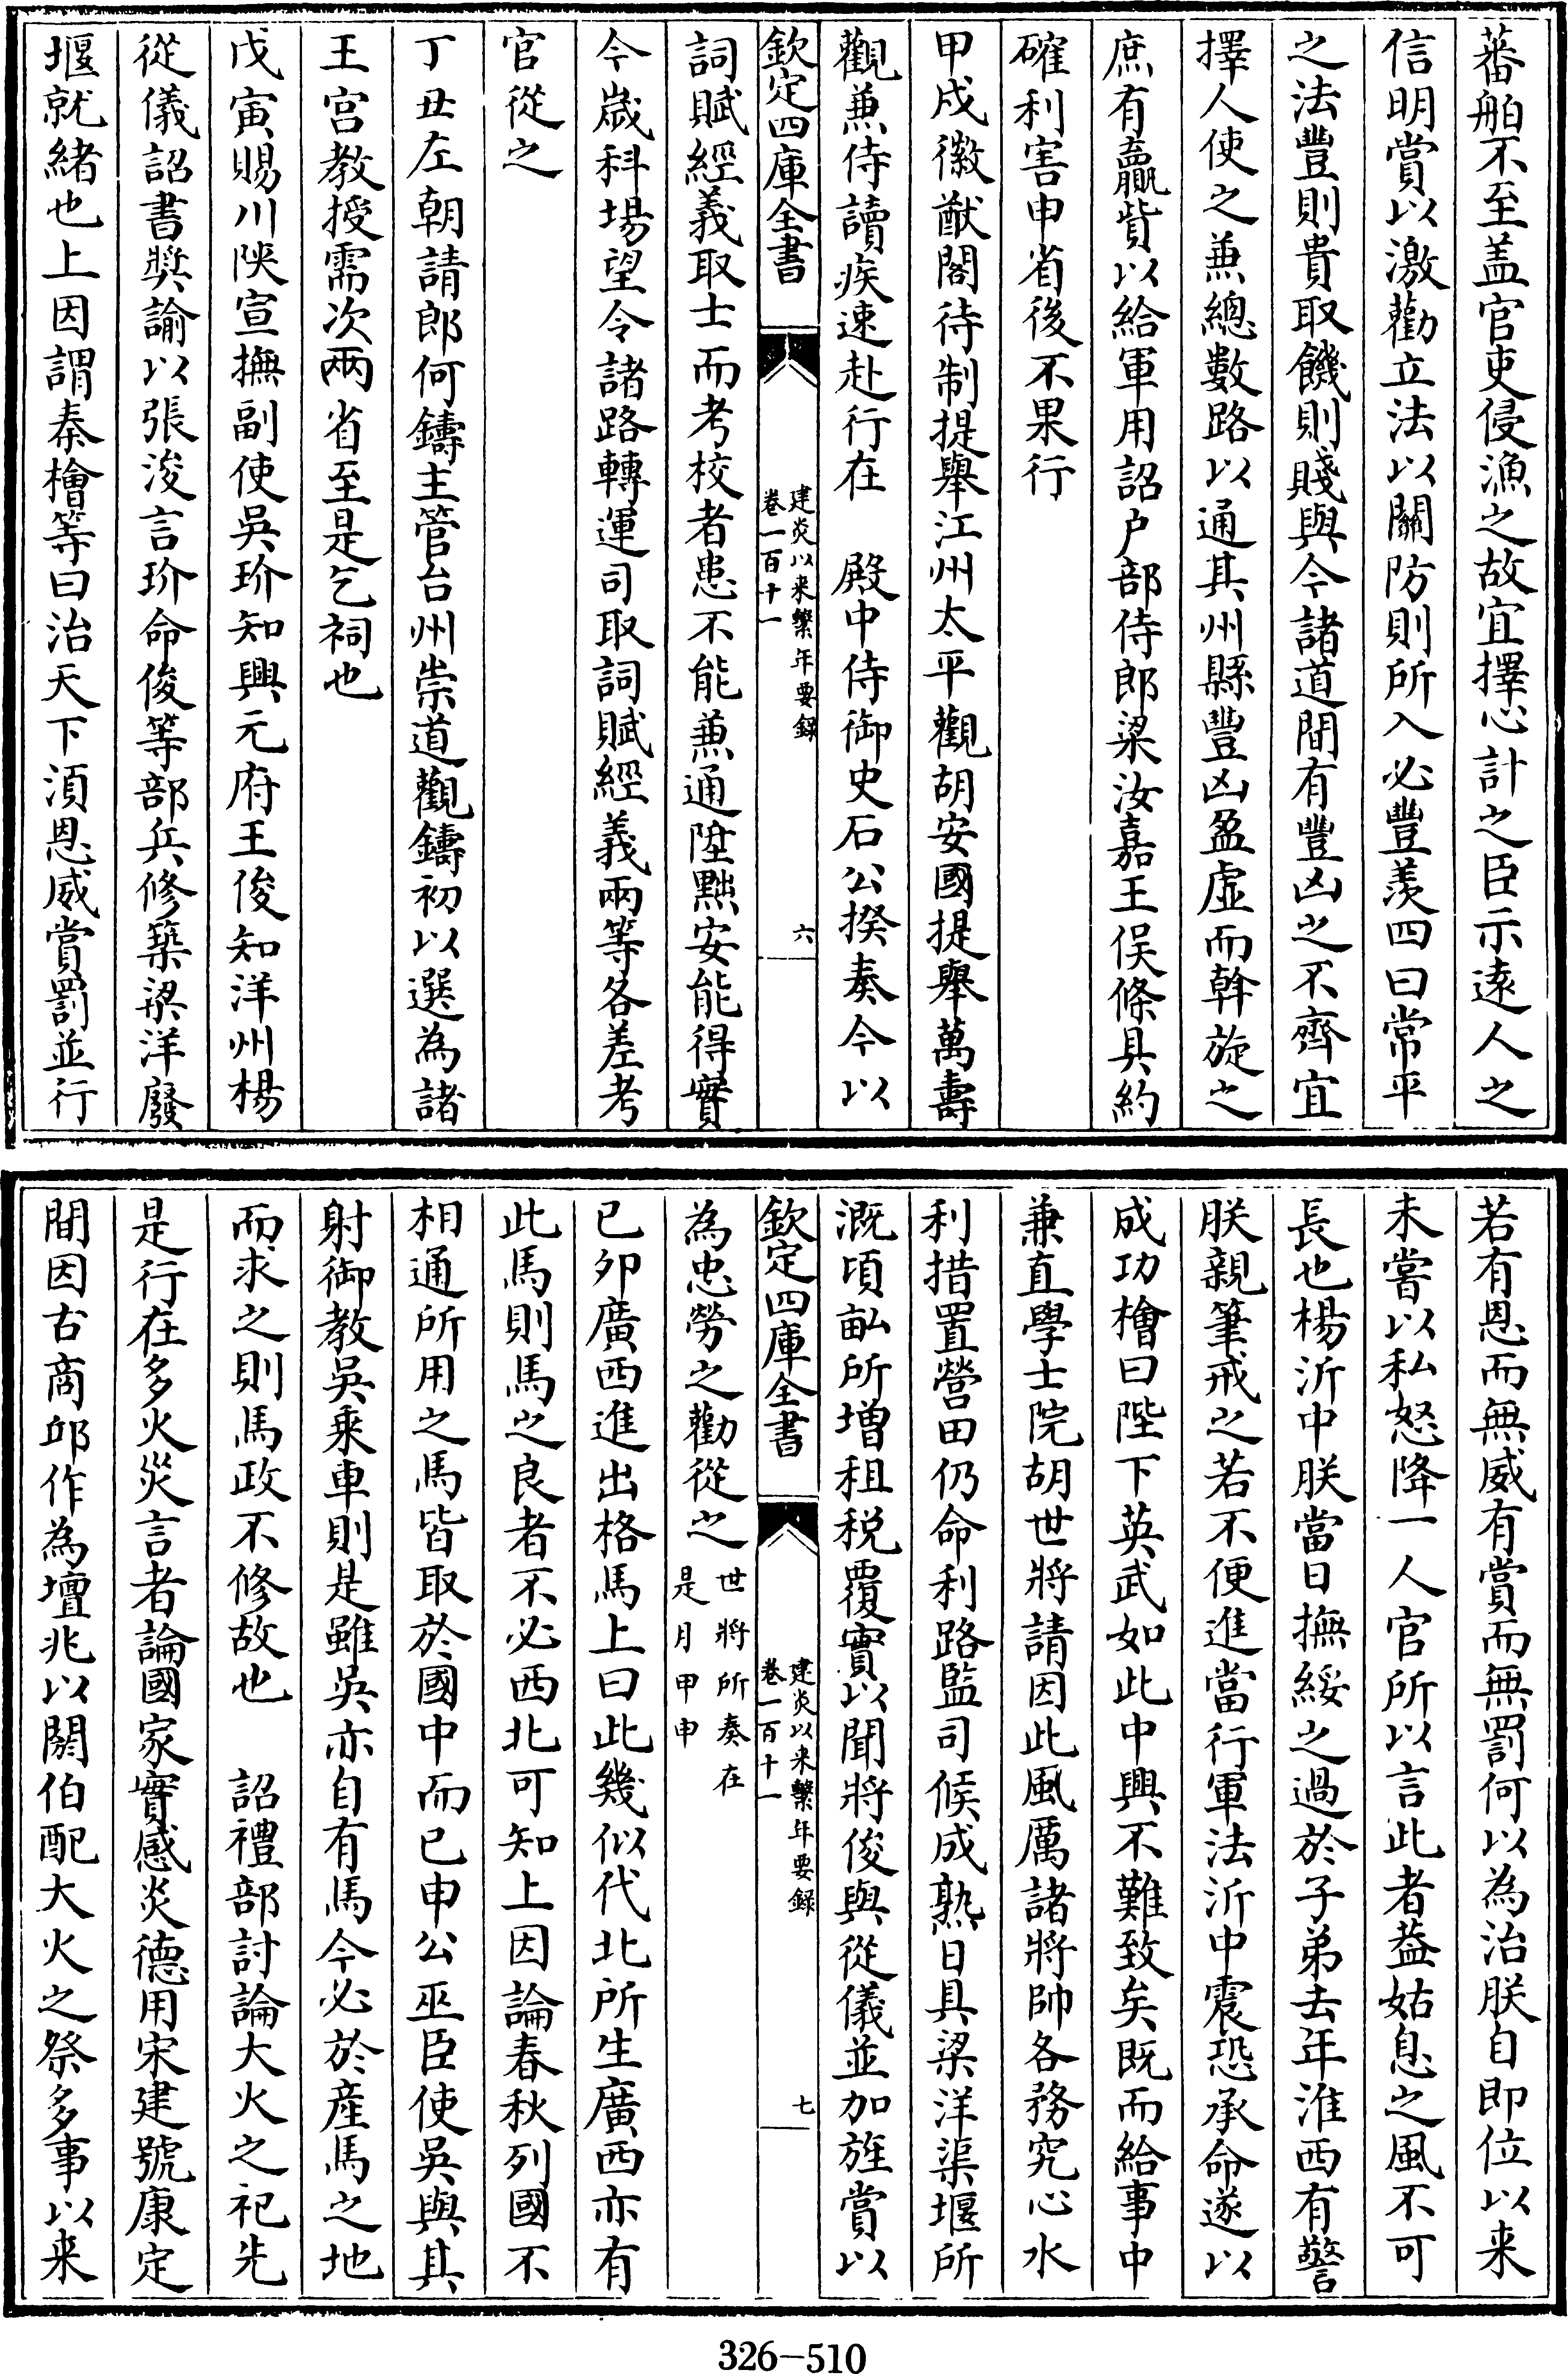 蕃舶不至盖官吏侵漁之故宜擇心計之臣示逺人之
信明賞以激勸立法以關防則所入必豐羡四曰常平
之法豐則貴取饑則賤與今諸道間有豐凶之不齊宜
擇人使之兼總數路以通其州縣豐凶盈虚而斡旋之
庶有贏貲以給軍用詔户部侍郎梁汝嘉王俣條具約
確利害申省後不果行
甲戌徽猷閣待制提舉江州太平觀胡安國提舉萬壽
觀兼侍讀疾速赴行在　殿中侍御史石公揆奏今以
欽定四庫全書
建炎以来繫年要録
卷一百十一
六
詞賦經義取士而考校者患不能兼通陞黜安能得實
今歲科場望令諸路轉運司取詞賦經義兩等各差考
官從之
丁丑左朝請郎何鑄主管台州崇道觀鑄初以選為諸
王宫教授需次兩省至是乞祠也
戊寅賜川陜宣撫副使吳玠知興元府王俊知洋州楊
從儀詔書奬諭以張浚言玠命俊等部兵修築梁洋廢
堰就緒也上因謂秦檜等曰治天下須恩威賞罰並行
若有恩而無威有賞而無罰何以為治朕自即位以来
未嘗以私怒降一人官所以言此者葢姑息之風不可
長也楊沂中朕當日撫綏之過於子弟去年淮西有警
朕親筆戒之若不便進當行軍法沂中震恐承命遂以
成功檜曰陛下英武如此中興不難致矣既而給事中
兼直學士院胡世將請因此風厲諸將帥各務究心水
利措置營田仍命利路監司候成熟日具梁洋渠堰所
溉頃畝所増租税覆實以聞將俊與從儀並加旌賞以
欽定四庫全書
建炎以来繫年要録
卷一百十一
七
為忠勞之勸從之世將所奏在
是月甲申
已卯廣西進出格馬上曰此幾似代北所生廣西亦有
此馬則馬之良者不必西北可知上因論春秋列國不
相通所用之馬皆取於國中而已申公巫臣使吳與其
射御教吳乘車則是雖吳亦自有馬今必於産馬之地
而求之則馬政不修故也　詔禮部討論大火之祀先
是行在多火災言者論國家實感炎德用宋建號康定
間因古商邱作為壇兆以閼伯配大火之祭多事以来
326-510